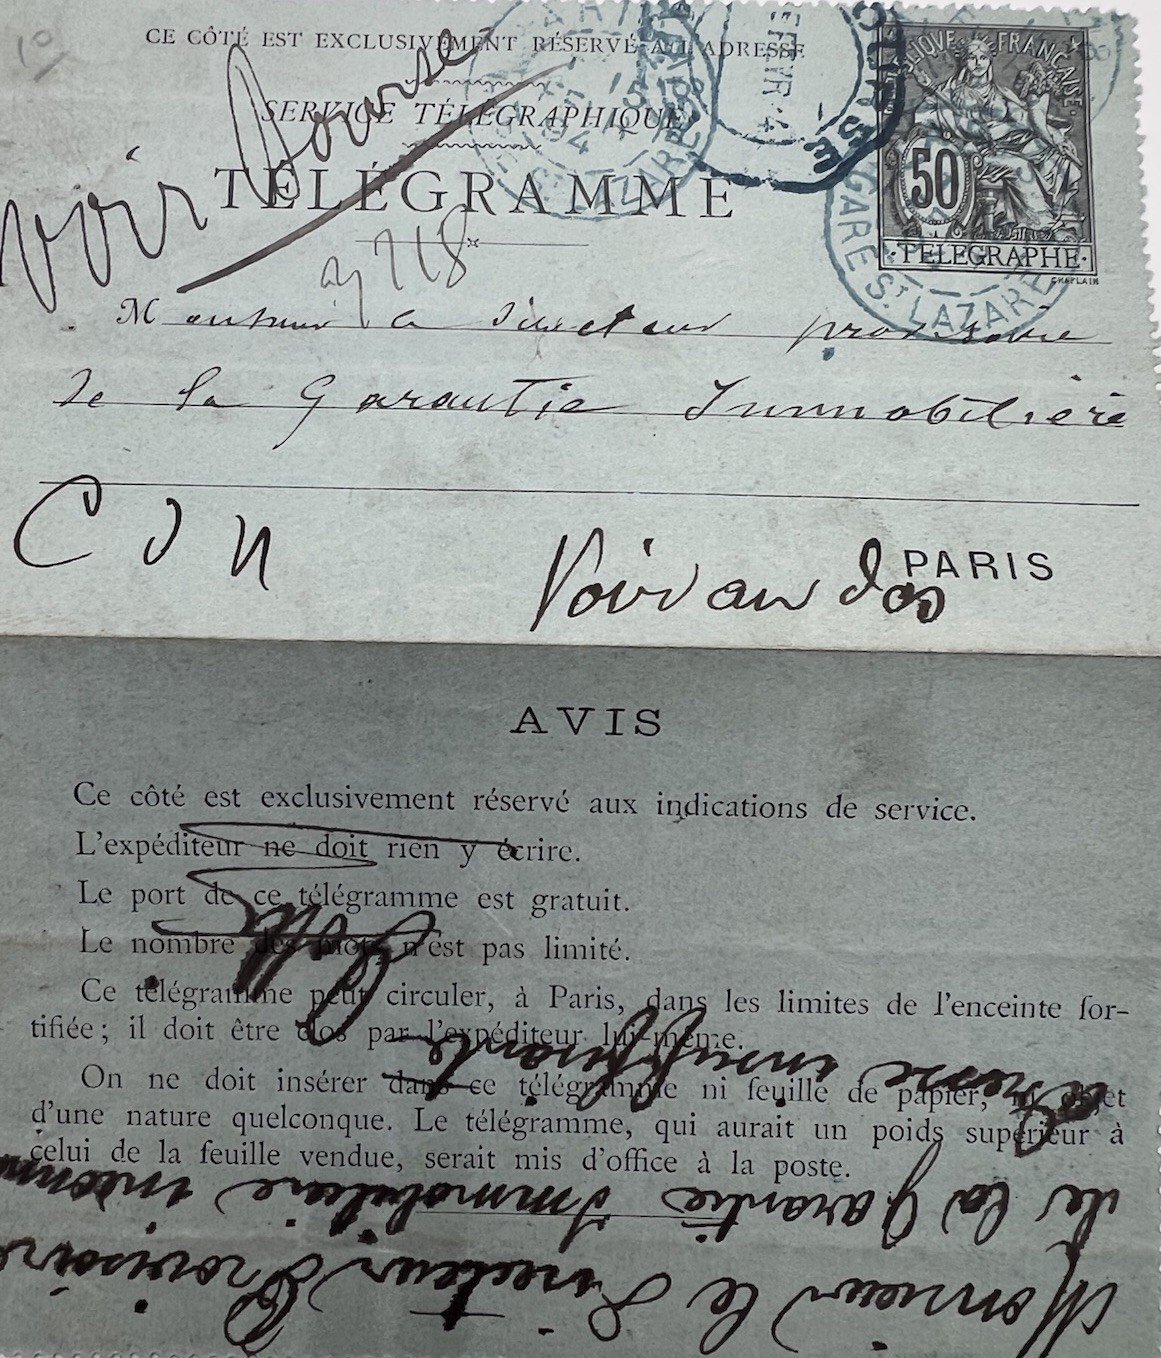 CE CÔTÉ EST EXCLUSIVEMENT RÉSERVÉ A L'ADRESSE
SERVICE TÉLÉGRAPHIQUE
voir Bourse
TÉLÉGRAMME
RÉPUBLIQUE FRANÇAISE
50
TELEGRAPHE
CHAPLAIN
GARE ST LAZARE
Monsieur le Directeur provisoire
de la Garantie Immobilière
PARIS
Voir au dos
AVIS
Ce côté est exclusivement réservé aux indications de service.
L'expéditeur ne doit rien y écrire.
Le port de ce télégramme est gratuit.
Le nombre des mots n'est pas limité.
Ce télégramme peut circuler, à Paris, dans les limites de l'enceinte for-
tifiée; il doit être clos par l'expéditeur lui-même.
On ne doit insérer dans ce télégramme ni feuille de papier, ni objet
d'une nature quelconque. Le télégramme, qui aurait un poids supérieur à
celui de la feuille vendue, serait mis d'office à la poste.
Monsieur le Directeur Provisoire
de la Garantie Immobilière inconnu
adresse insuffisante